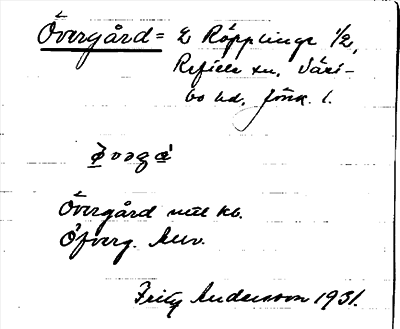 Övergård = E Röpplinge 1/2,
Reftele sn, Västbo hd, Jönk. l.
Övergård enl kb.
Öfverg.
Fritz Andersson 1931.